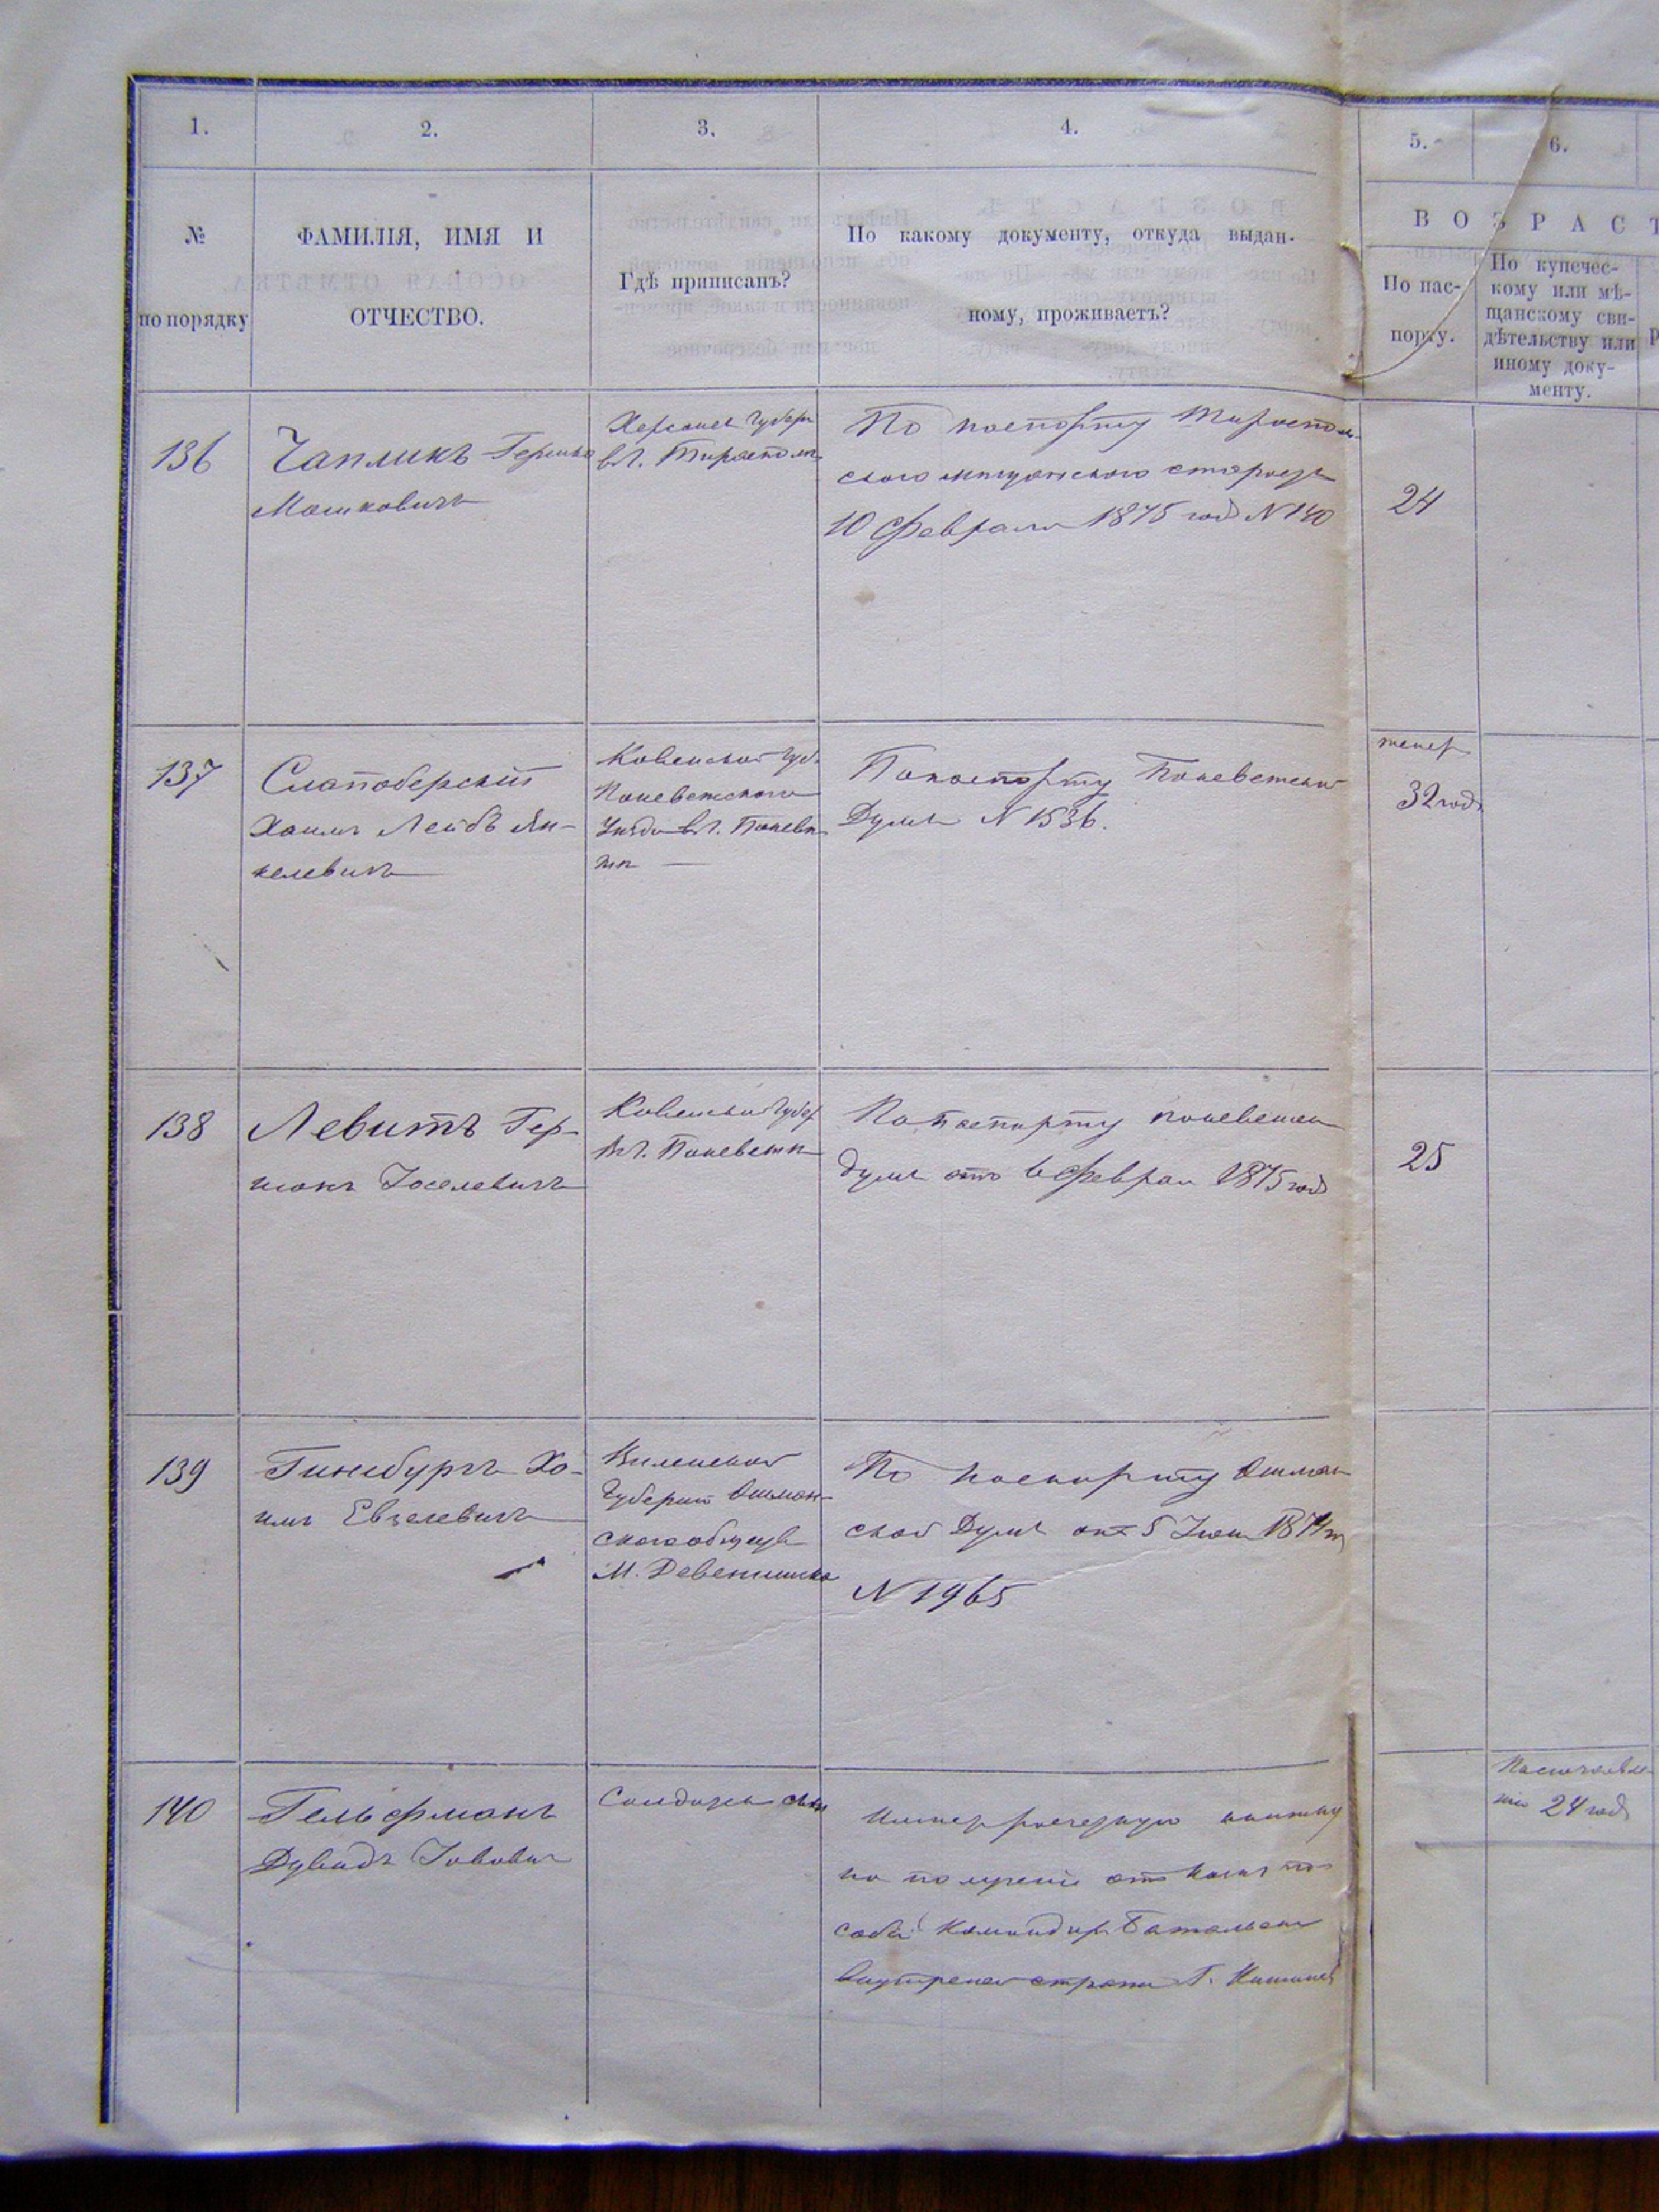 1. 2. 3. 4. 5. 6.
№
по порядку
ФАМИЛІЯ, ИМЯ И
ОТЧЕСТВО.
Гдѣ приписанъ?
По какому документу, откуда выдан-
ному, проживаетъ?
ВОЗРАСТ
По пас-
порту.
По купечес-
кому или мѣ-
щанскому сви-
дѣтельству или
иному доку-
менту.
136
Чапликъ Гершко
Мошковичъ
Херсонск Губерн
въ г. Тирасполь
По паспорту Тирасполь-
ского мещанского старосты
10 Февраля 1875 год N 140
24
137
Слапоберскій
Хаимъ Лейбъ Ян-
келевичъ
Ковенской Губ.
Поневежского
Уезда въ г. Поневе
По паспорту Поневежской
Думы N 1536.
32 год
138
Левитъ Гер-
шонъ Иоселевичъ
Ковенской Губер
въ г. Поневеже
По паспорту поневежск
думы отъ 6 Феврал 1875 год
25
139
Гинсбургъ Ха-
имъ Евзелевичъ
Виленской
Губерніи Ошмян-
ского общества
М. Девенишки
По паспорту Ошмян
ской Думы отъ 5 1874
N 1965
140
Гельфманъ
Дувидъ Іововичъ
Солдатск сын
книжку
на полученіе отъ казны по-
собія Командира Баталіона
внутреней стражи г. Кишинев
24 год